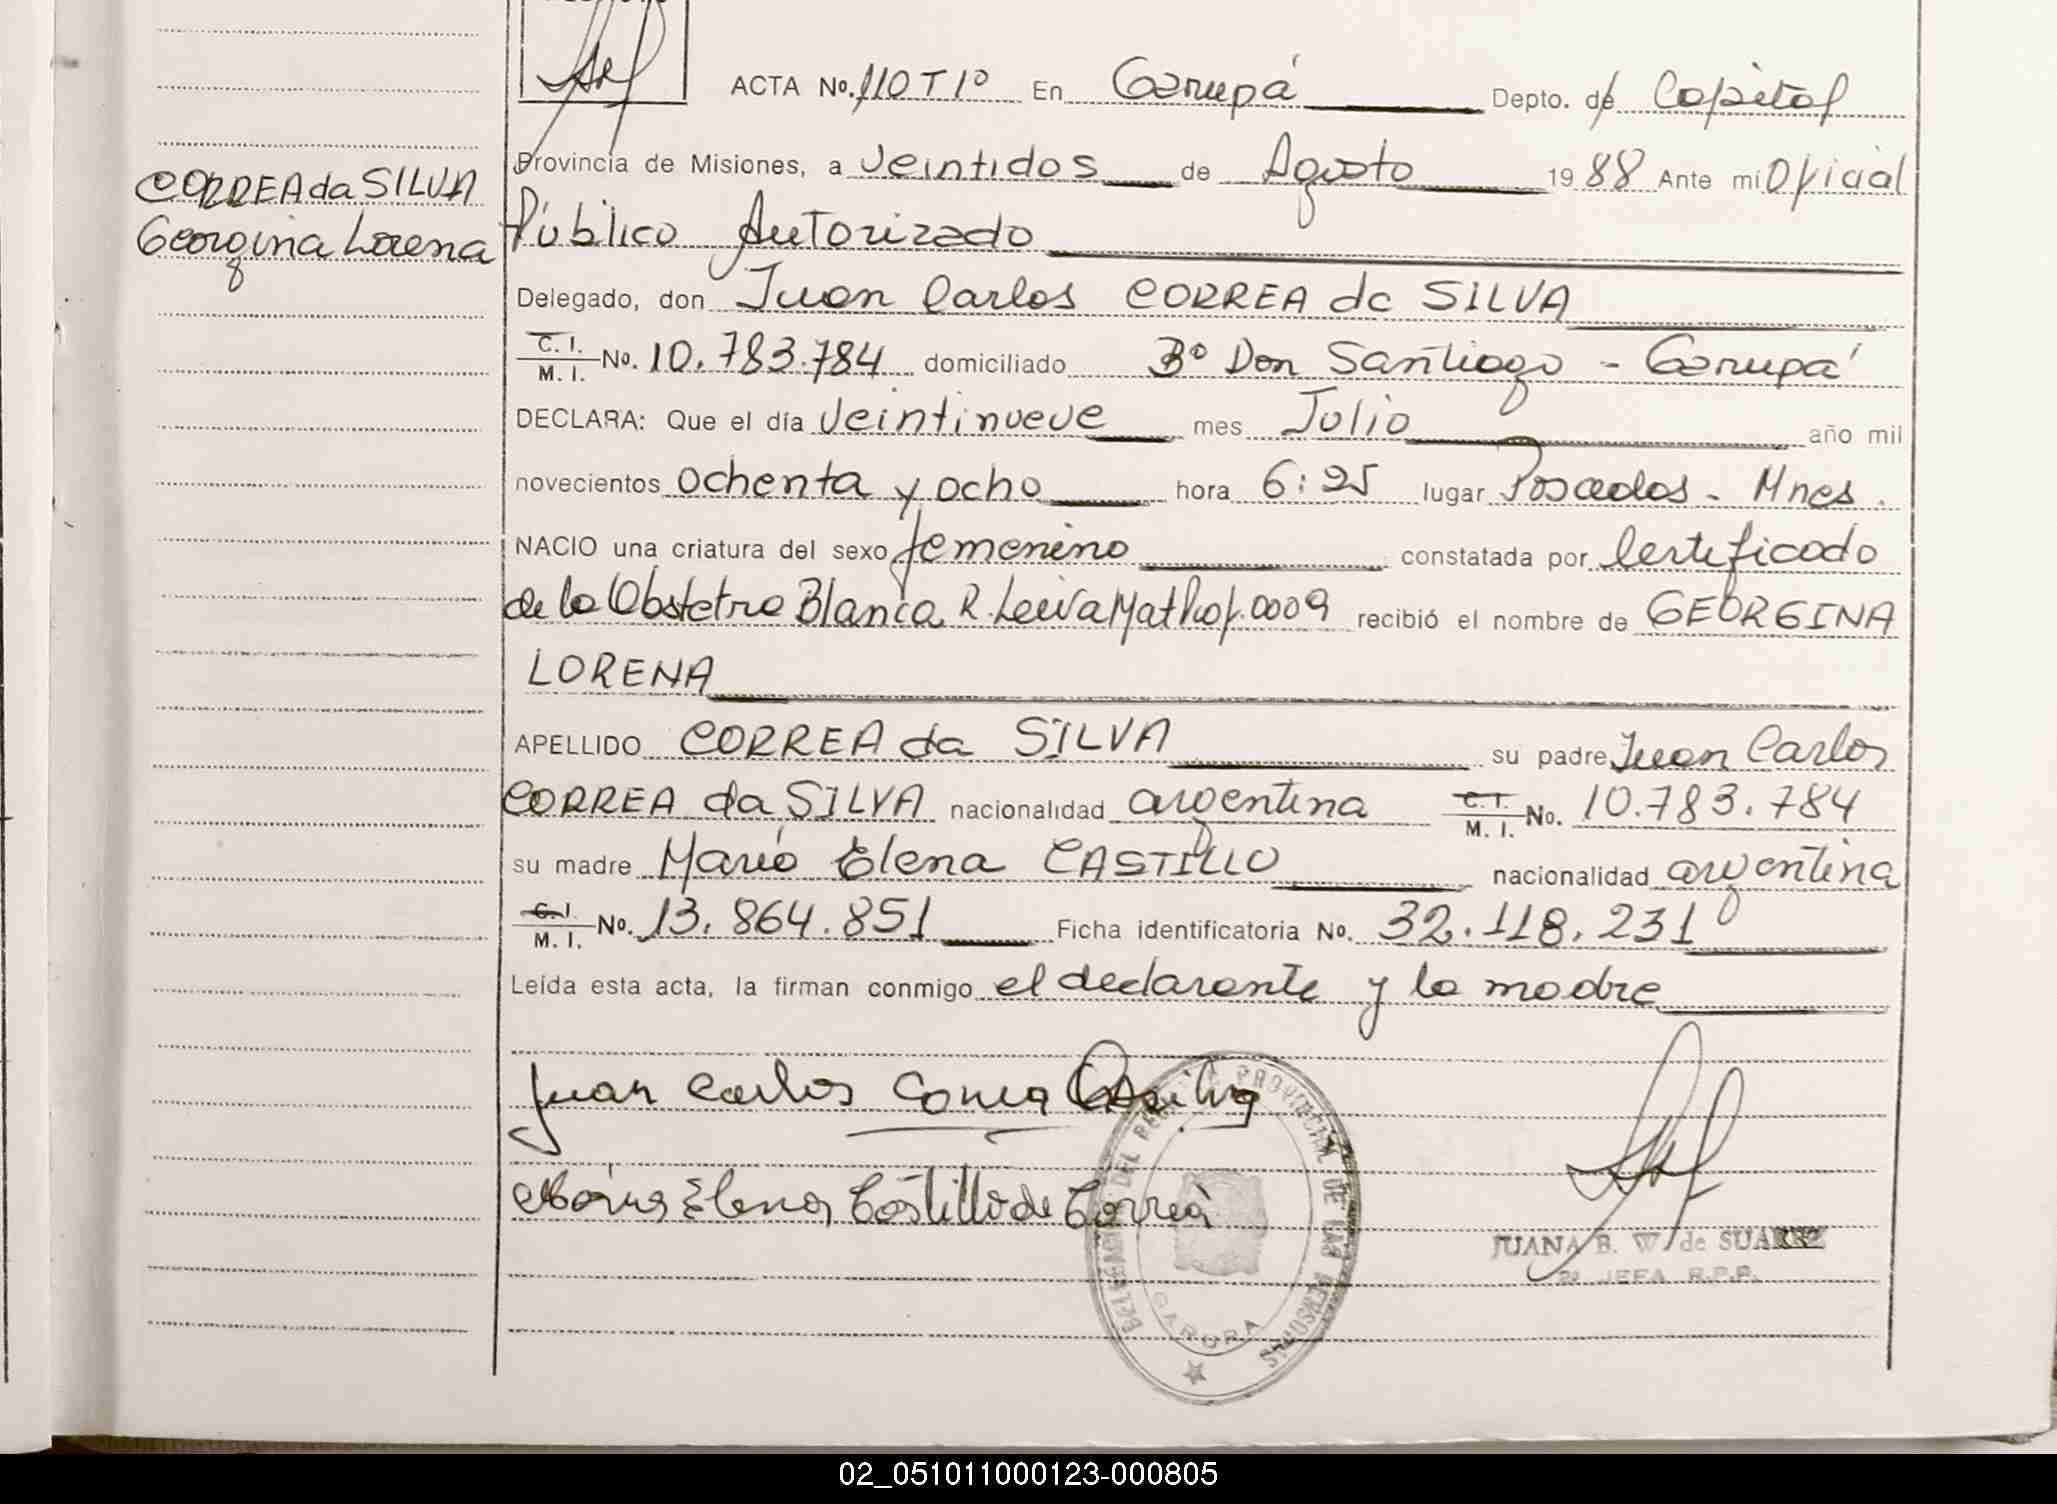 ACTA No. 110 T 1º En Garupá Depto. de Capital
CORREA da SILVA
Georgina Lorena
Provincia de Misiones, a veintidos de Agosto 1988 Ante mí Oficial
Público Autorizado
Delegado, don Juan Carlos CORREA da SILVA
C. I. M. I. No. 10.783.784 domiciliado Bº Don Santiago - Garupá
DECLARA: Que el día veintinueve mes Julio año mil
novecientos ochenta y ocho hora 6:25 lugar Posadas - Mnes.
NACIO una criatura del sexo femenino constatada por Certificado
de la Obstetra Blanca R. Leiva Mat Prof. 0009 recibió el nombre de GEORGINA
LORENA
APELLIDO CORREA da SILVA su padre Juan Carlos
CORREA da SILVA nacionalidad argentina C. I. M. I. No. 10.783.784
su madre María Elena CASTILLO nacionalidad argentina
C. I. M. I. No. 13.864.851 Ficha identificatoria No. 32.118.231
Leída esta acta, la firman conmigo el declarante y la madre
Juan Carlos Correa Da Silva
María Elena Castillo de Correa
DELEGACION DEL REGISTRO PROVINCIAL DE LAS PERSONAS
GARUPA
JUANA B. W. de SUAREZ
JEFA R.P.P.
02_051011000123-000805